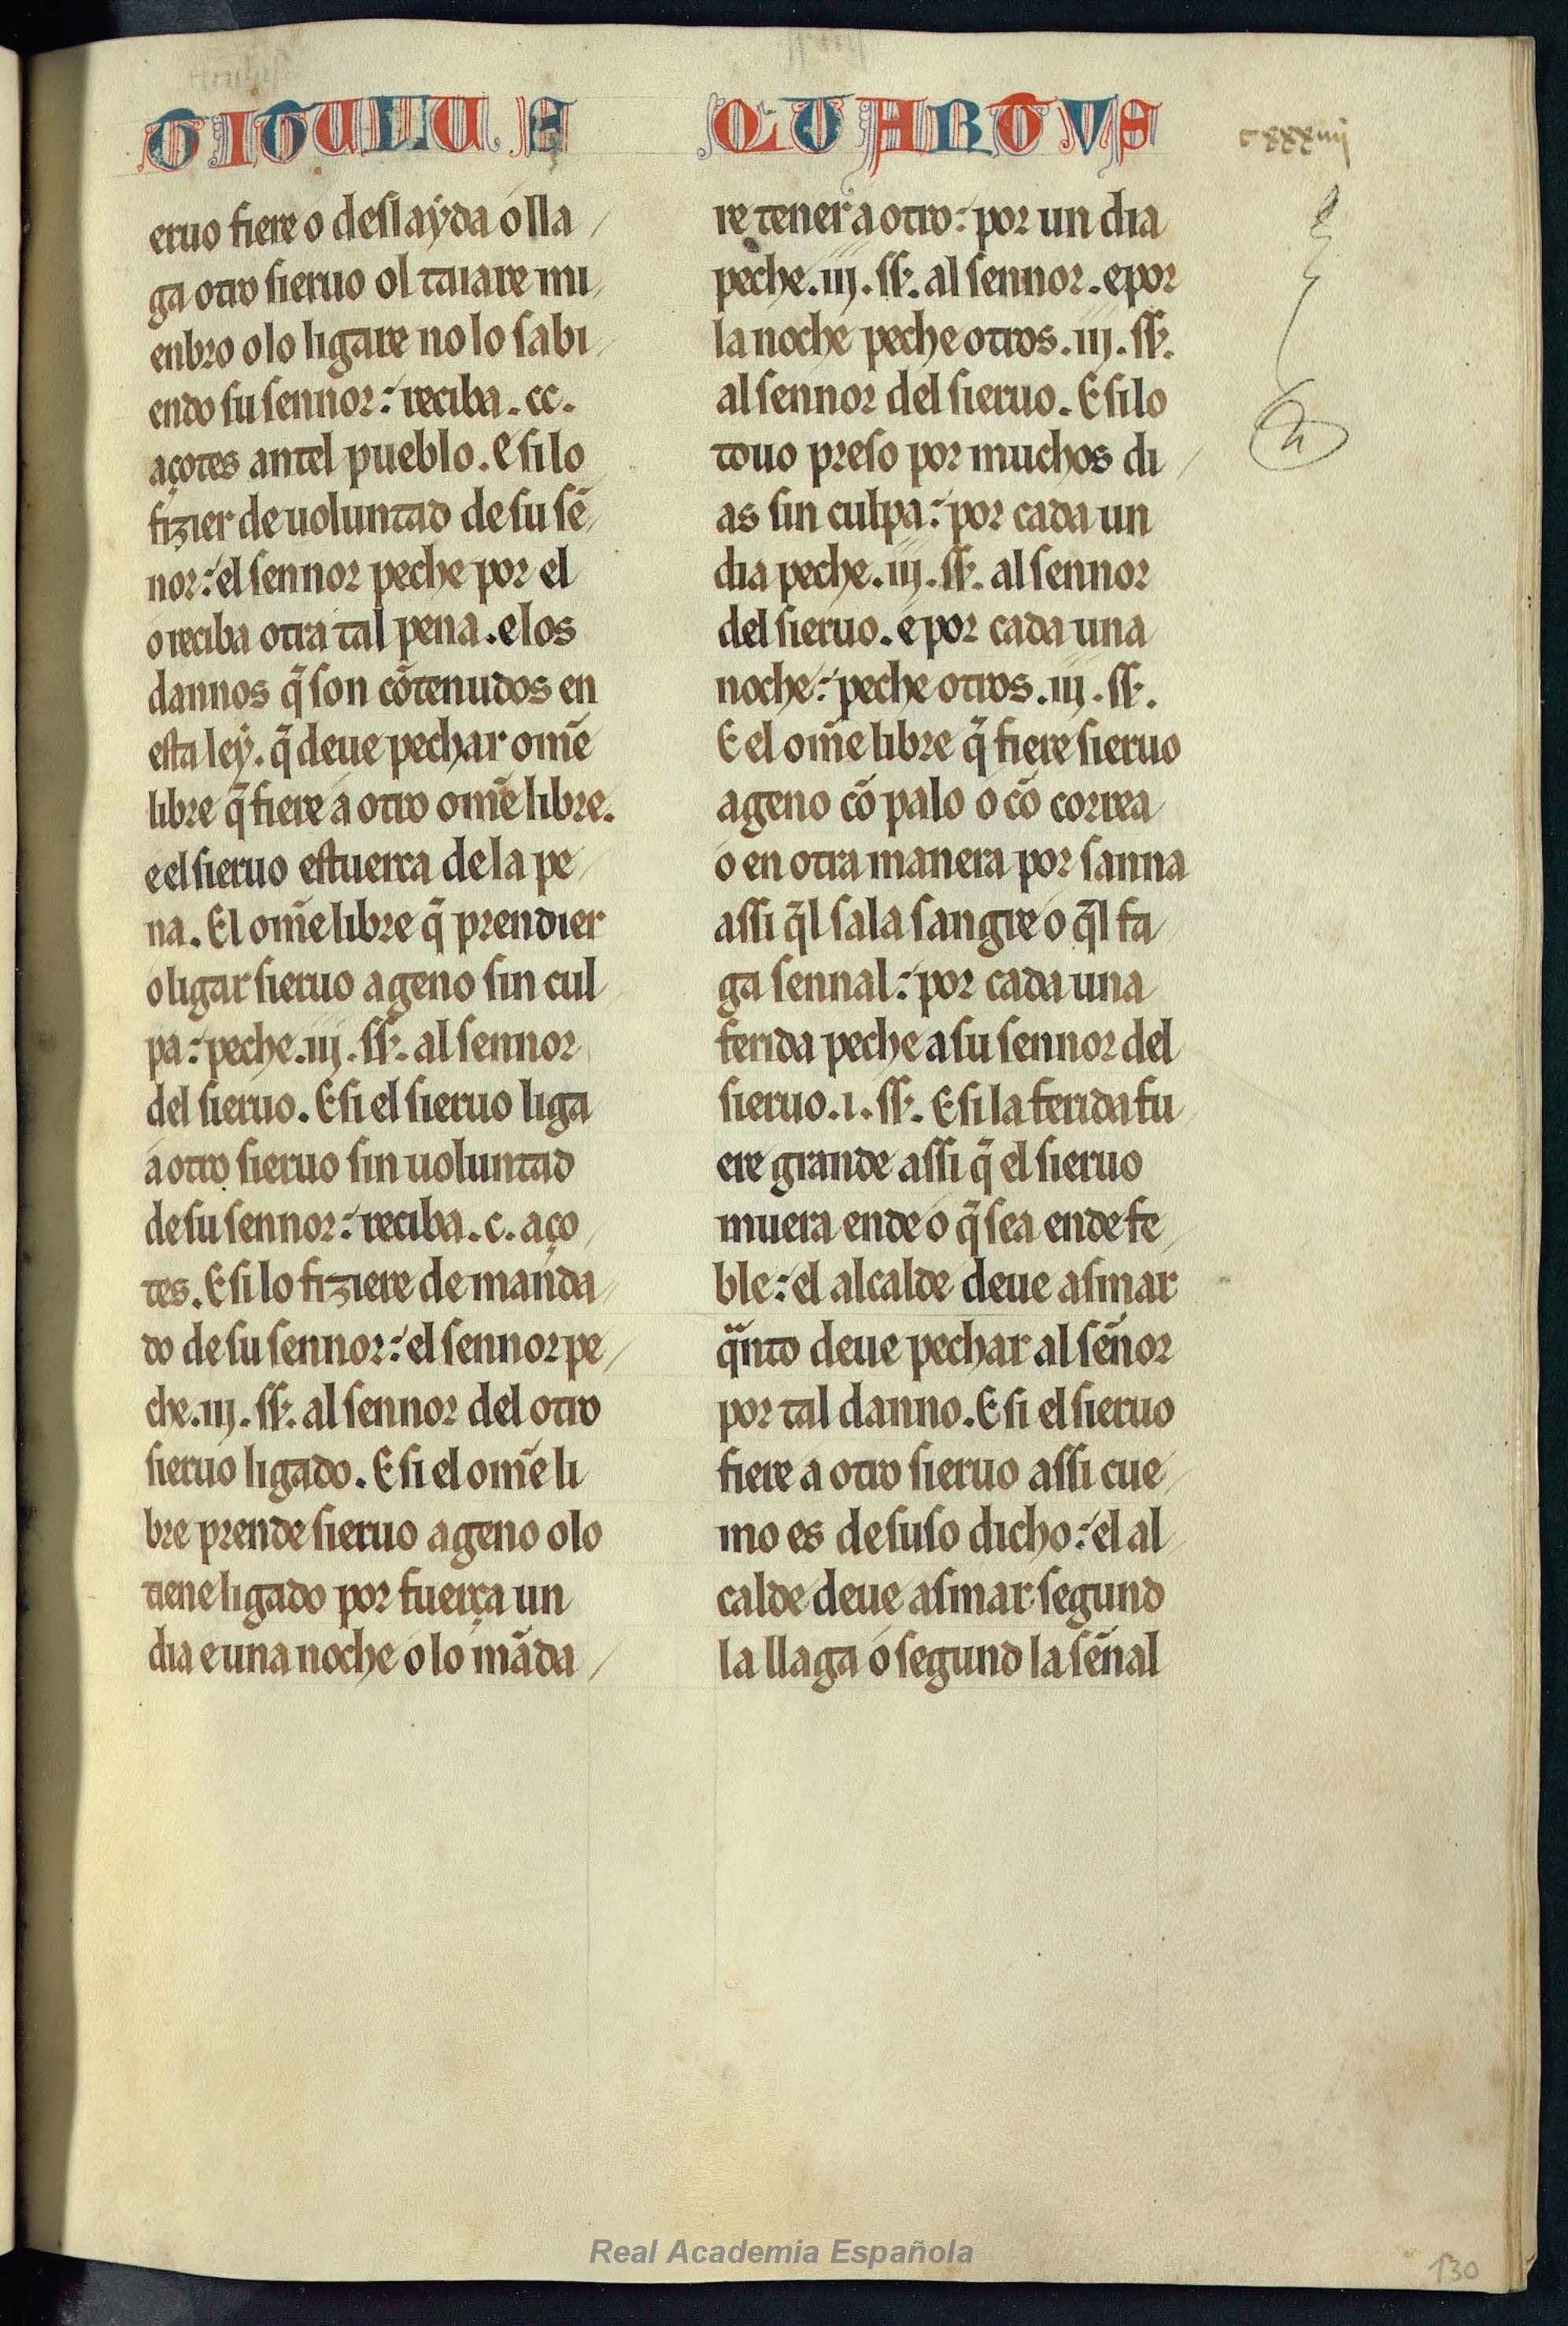 TITULUS QUARTVS
cxxxiiij
eruo fiere o deslayda o lla
ga otro sieruo ol taiare mi
enbro o lo ligare no lo sabi
endo su sennor: reciba .cc.
açotes antel pueblo. E si lo
fizier de uoluntad de su sē
nor: el sennor peche por el
o reciba otra tal pena. e los
dannos q̄ son cōtenudos en
esta ley. q̄ deue pechar om̄e
libre q̄ fiere a otro om̄e libre.
e el sieruo estuerça de la pe
na. El om̄e libre q̄ prendier
o ligar sieruo ageno sin cul
pa: peche .iij. ss. al sennor
del sieruo. E si el sieruo liga
a otro sieruo sin uoluntad
de su sennor: reciba .c. aço
tes. E si lo fiziere de manda
do de su sennor: el sennor pe
che .iij. ss. al sennor del otro
sieruo ligado. E si el om̄e li
bre prende sieruo ageno o lo
tiene ligado por fuerça un
dia e una noche o lo māda
re tener a otro: por un dia
peche .iij. ss. al sennor. e por
la noche peche otros .iij. ss.
al sennor del sieruo. E si lo
touo preso por muchos di
as sin culpa: por cada un
dia peche .iij. ss. al sennor
del sieruo. e por cada una
noche: peche otros .iij. ss.
E el om̄e libre q̄ fiere sieruo
ageno cō palo o cō correa
o en otra manera por sanna
assi q̄l sala sangre o q̄l fa
ga sennal: por cada una
ferida peche a su sennor del
sieruo .i. ss. E si la ferida fu
ere grande assi q̄ el sieruo
muera ende o q̄ sea ende fe
ble: el alcalde deue asmar
q̄nto deue pechar al sēnor
por tal danno. E si el sieruo
fiere a otro sieruo assi cue
mo es de suso dicho: el al
calde deue asmar segund
la llaga o segund la sēnal
Real Academia Española
130